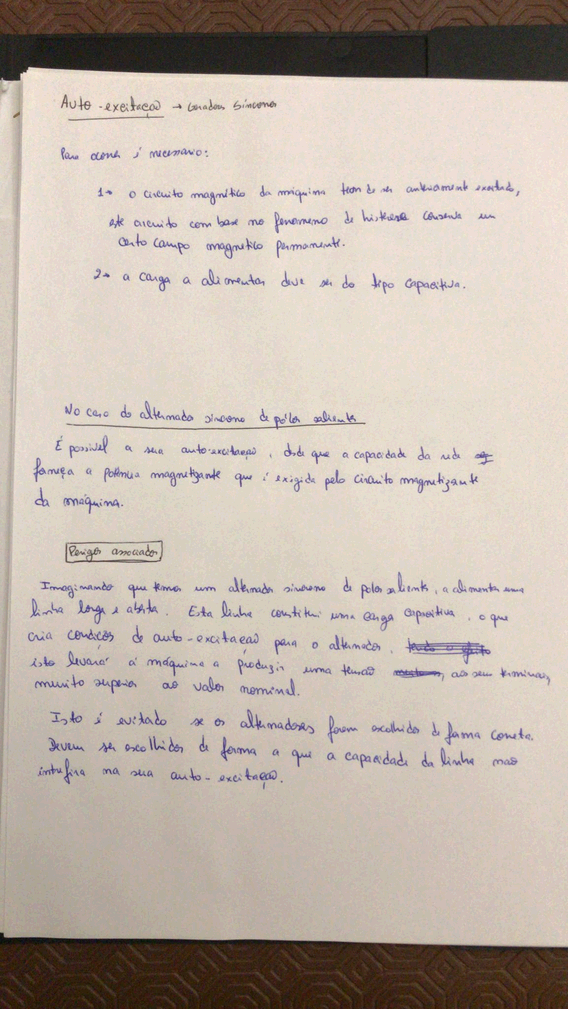 Auto-excitação → Geradores Síncronos
Para ocorrer é necessário:
1→ o circuito magnético da máquina tem de ser anteriamente excitado,
este circuito com base no fenomeno de histerese conserva um
certo campo magnetico permanente.
2→ a carga a alimentar deve ser do tipo capacitiva.
No caso do alternador síncrono de pólos salientes
É possivel a sua auto-excitação, desde que a capacidade da rede
forneça a potência magnetizante que é exigida pelo circuito magnetizante
da máquina.
Perigos associados
Imaginando que temos um alternador síncrono de polos salientes, a alimentar uma
linha longa e aberta. Esta linha constitui uma carga capacitiva, o que
cria condições de auto-excitação para o alternador.
isto levará a máquina a produzir uma tensão, aos seus terminais,
muito superior ao valor nominal.
Isto é evitado se os alternadores forem escolhidos de forma correta.
Devem ser escolhidos de forma a que a capacidade da linha nao
interfira na sua auto-excitação.